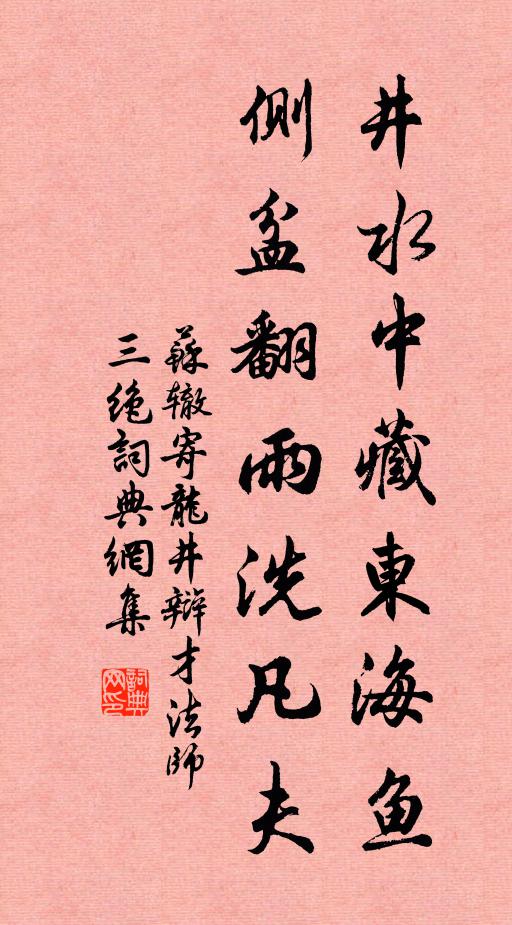 井水中藏東海鱼
側盆翻雨洗凡夫
蘇辙寄龍井辯才法師
三絶詞典網集
詞典
网印